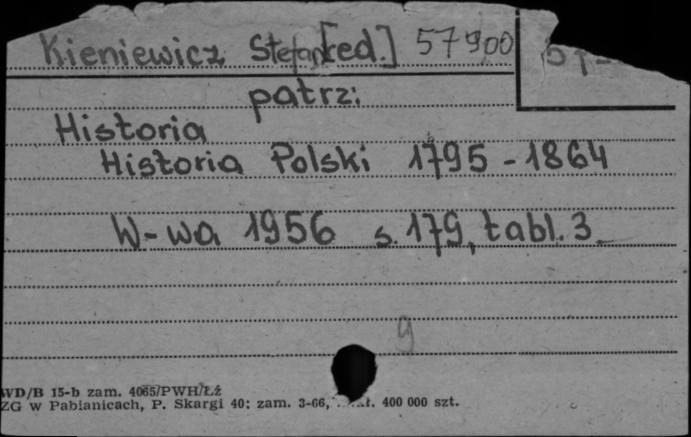 Kieniewicz Stefan [ed.] 57900
patrz:
Historia
Historia Polski 1795-1864
W-wa 1956 s. 179, tabl. 3
9
WD/B 15-b zam. 4065/PWH/Łź
ZG w Pabianicach, P. Skargi 40; zam. 3-66, 400 000 szt.